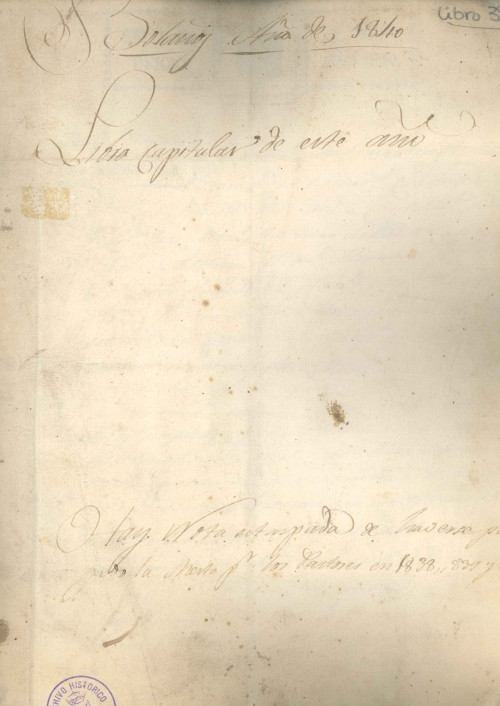 Libro 3
Bolaños Año de 1840
Libro capitular de este año
Hay Nota estampada de haverse
la Mesta pr. los Pastores en 1838, 839 y
CHIVO HISTORICO